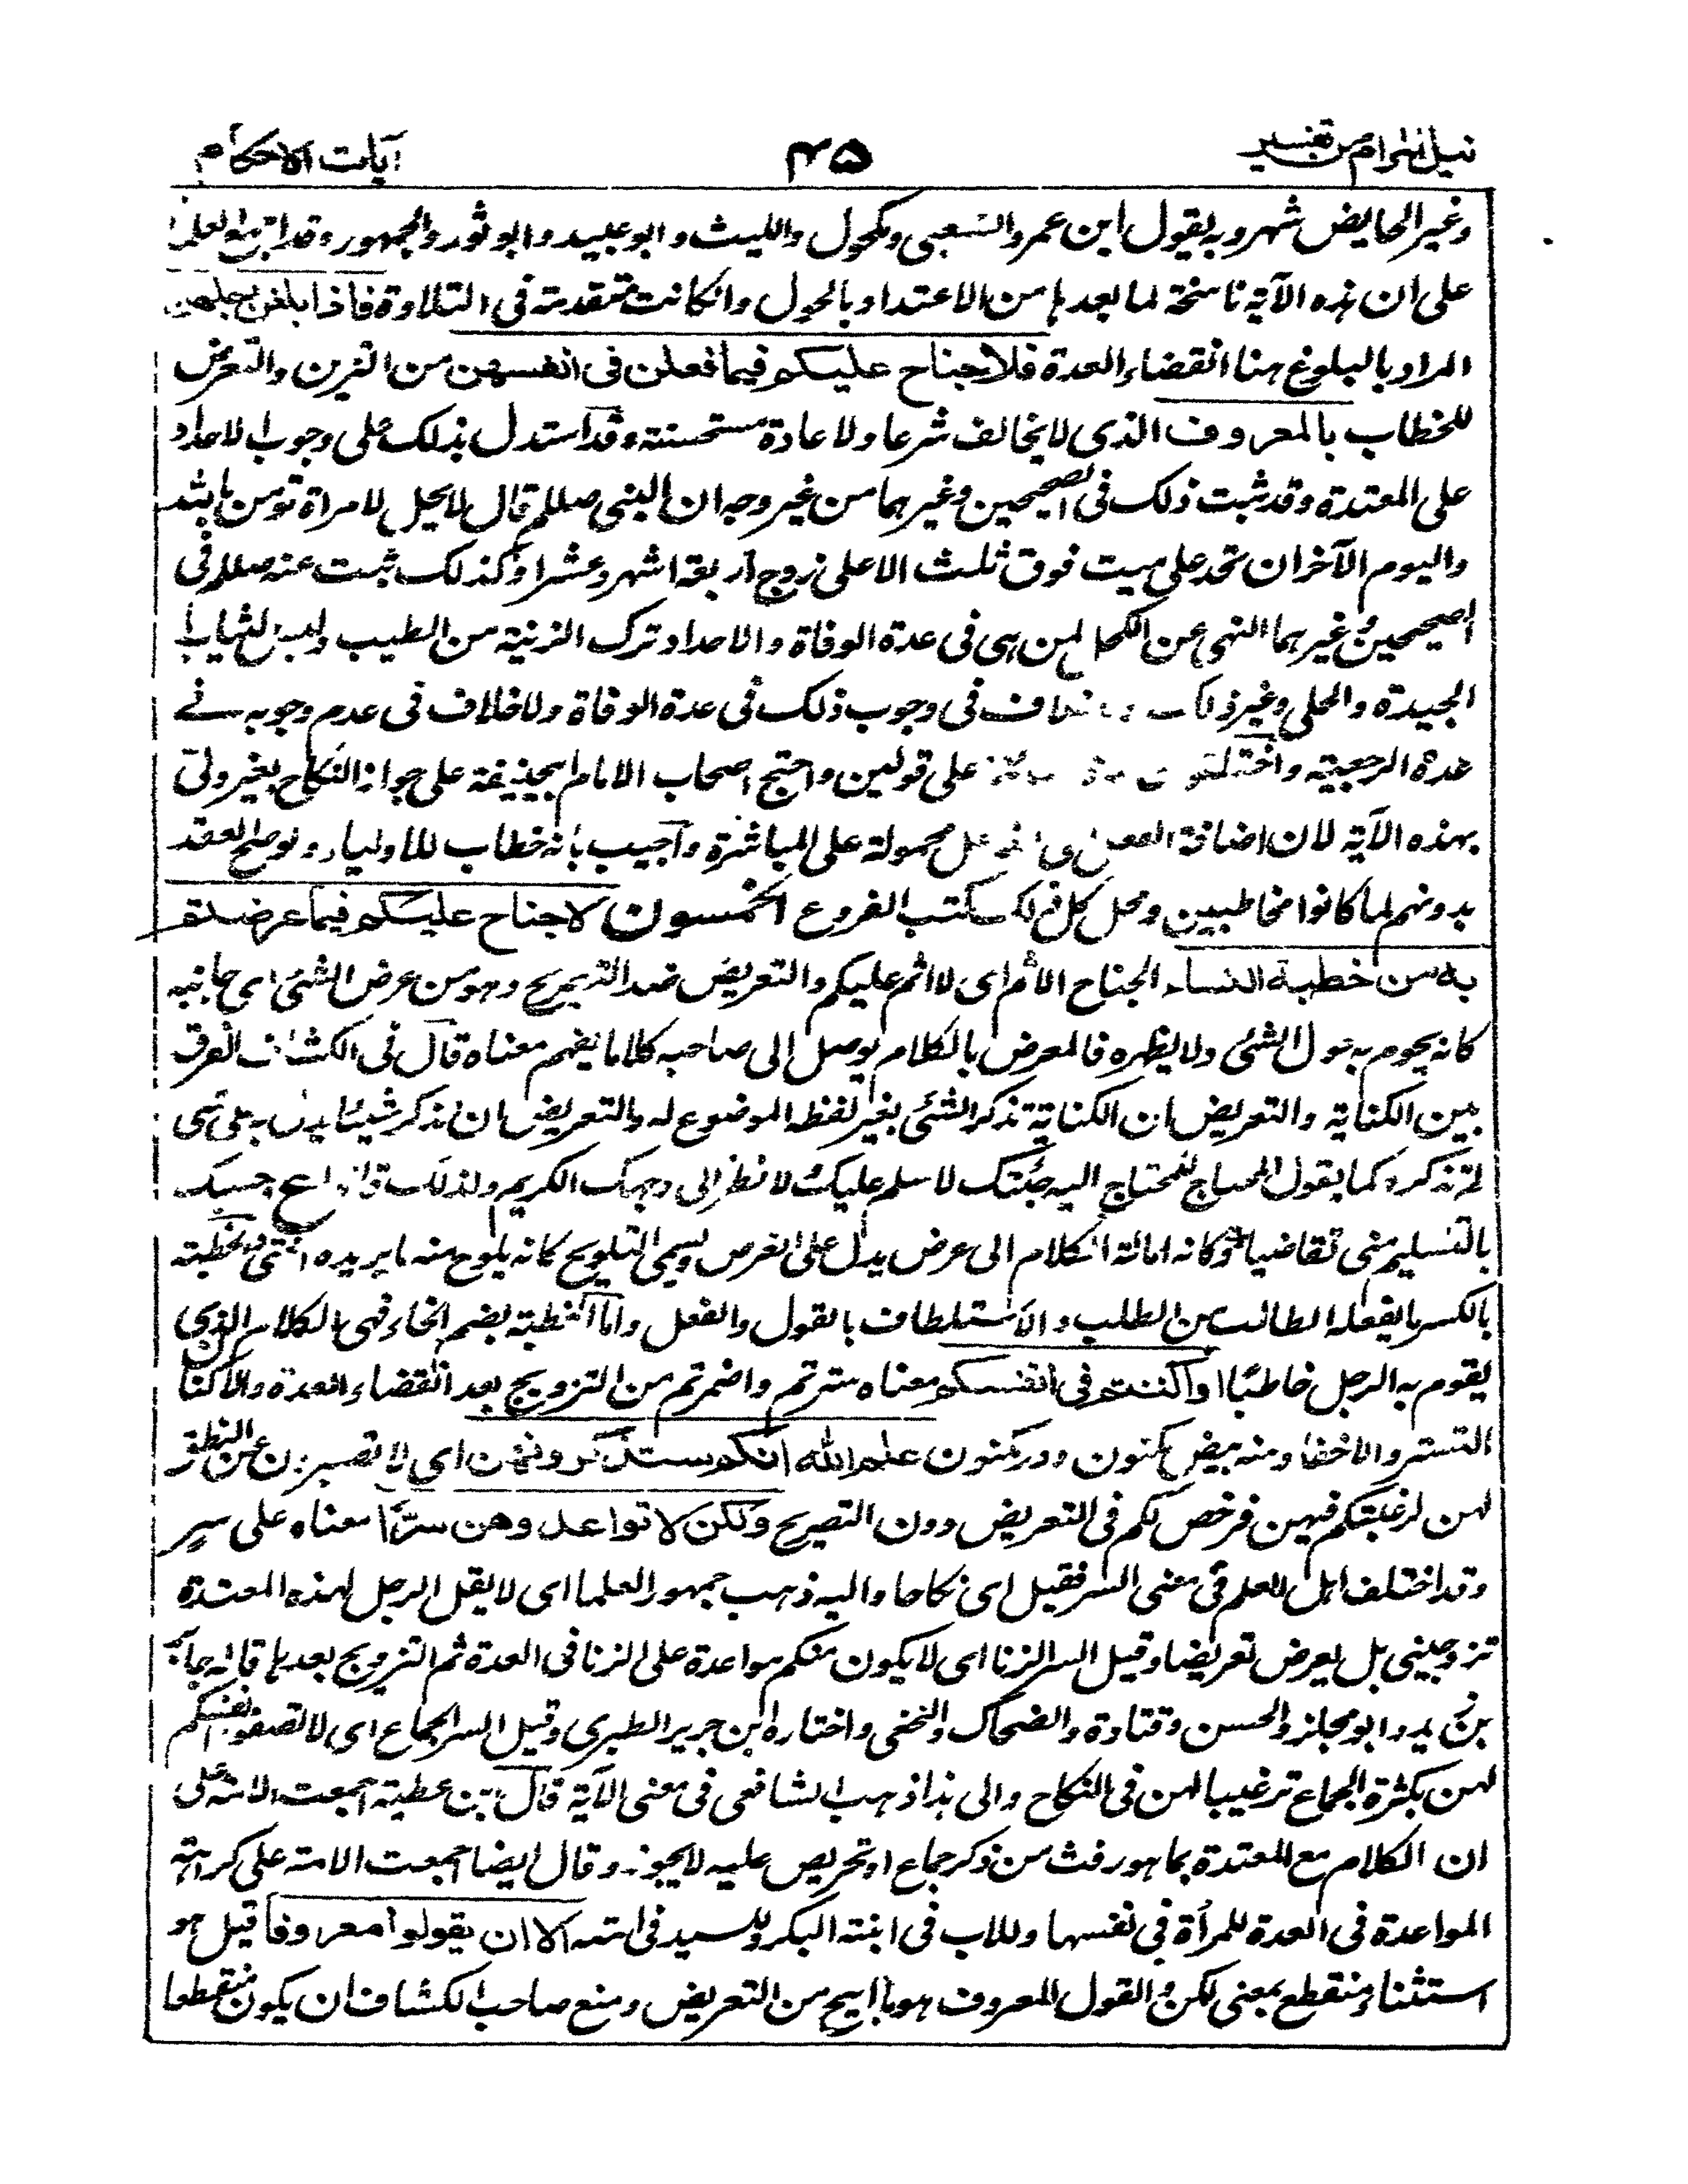 نيل المرام من تفسير ٤٥ آيات الاحكام
وغير الحايض شهر وبه يقول ابن عمر والشعبى ومكحول والليث وابو عبيد وابو ثور والجمهور وقد اجمع العلماء
على ان هذه الآية ناسخة لما بعدها من الاعتداد بالحول وانكانت متقدمة فى التلاوة فاذا بلغن اجلهن
المراد بالبلوغ هنا انقضاء العدة فلا جناح عليكم فيما فعلن فى انفسهن من التزين والتعرض
للخطاب بالمعروف الذى لا يخالف شرعا ولا عادة مستحسنة وقد استدل بذلك على وجوب الاحداد
على المعتدة وقد ثبت ذلك فى الصحيحين وغيرهما من غير وجه ان النبى صللم قال لا يحل لامراة تؤمن بالله
واليوم الآخر ان تحد على ميت فوق ثلث الا على زوج اربعة اشهر وعشرا وكذلك ثبت عنه صللم فى
الصحيحين وغيرهما النهى عن الكحل لمن هى فى عدة الوفاة والاحداد ترك الزينة من الطيب ولبس الثياب
الجيدة والحلى وغير ذلك ولا خلاف فى وجوب ذلك فى عدة الوفاة ولا خلاف فى عدم وجوبه فے
عدة الرجعية واختلفوا على قولين واحتج اصحاب الامام ابيحنيفة على جواز النكاح بغير ولى
بهذه الآية لان اضافة الفعل الى الفاعل محمولة على المباشرة واجيب بانه خطاب للاولياء ولو صح العقد
بدونهم لما كانوا مخاطبين ومحل كل ذلك كتب الفروع الخمسون لا جناح عليكم فيما عرضتم
به من خطبة النساء الجناح الاثم اى لا اثم عليكم والتعريض ضد التصريح وهو من عرض الشئ اى جانبه
كانه يحوم به حول الشئ ولا يظهره فالمعرض بالكلام يوصل الى صاحبه كلاما يفهم معناه قال فى الكشاف الفرق
بين الكناية والتعريض ان الكناية تذكر الشئ بغير لفظه الموضوع له والتعريض ان تذكر شيئا يدل به على شى
لم تذكره كما يقول المحتاج للمحتاج اليه جئتك لاسلم عليك ولانظر الى وجهك الكريم ولذلك قالوا ع حسبك
بالتسليم منى تقاضيا وكانه امالة الكلام الى عرض يدل على الغرض ويسمى التلويح كانه يلوح منه ما يريده انتهى والخطبة
بالكسر ما يفعله الطالب من الطلب والاستلطاف بالقول والفعل واما الخطبة بضم الخاء فهى الكلام الذى
يقوم به الرجل خاطبًا او اكننتم فى انفسكم معناه سترتم واضمرتم من التزويج بعد انقضاء العدة والاكنان
التستر والاخفاء ومنه بيض مكنون ودر مكنون علم الله انكم ستذكرونهن اى لا تصبرون عن النطق
لهن لرغبتكم فيهن فرخص لكم فى التعريض دون التصريح ولكن لا تواعدوهن سرًّا معناه على سر
وقد اختلف اهل العلم فى معنى السر فقيل اى نكاحا واليه ذهب جمهور العلما اى لا يقل الرجل لهذه المعتدة
تزوجينى بل يعرض تعريضا وقيل السر الزنا اى لا يكون منكم مواعدة على الزنا فى العدة ثم التزويج بعدها قاله جابر
بن زيد وابو مجلز والحسن وقتادة والضحاك والنخعى واختاره ابن جرير الطبرى وقيل السر الجماع اى لا تصفوا انفسكم
لهن بكثرة الجماع ترغيبا لهن فى النكاح والى هذا ذهب الشافعى فى معنى الآية قال ابن عطية اجمعت الامة على
ان الكلام مع المعتدة بما هو رفث من ذكر جماع او تحريض عليه لا يجوز وقال ايضا اجمعت الامة على كراهة
المواعدة فى العدة للمرأة فى نفسها وللاب فى ابنته البكر وللسيد فى امته الا ان يقولوا معروفا قيل هو
استثناء منقطع بمعنى لكن والقول المعروف هو ما ابيح من التعريض ومنع صاحب الكشاف ان يكون منقطعا